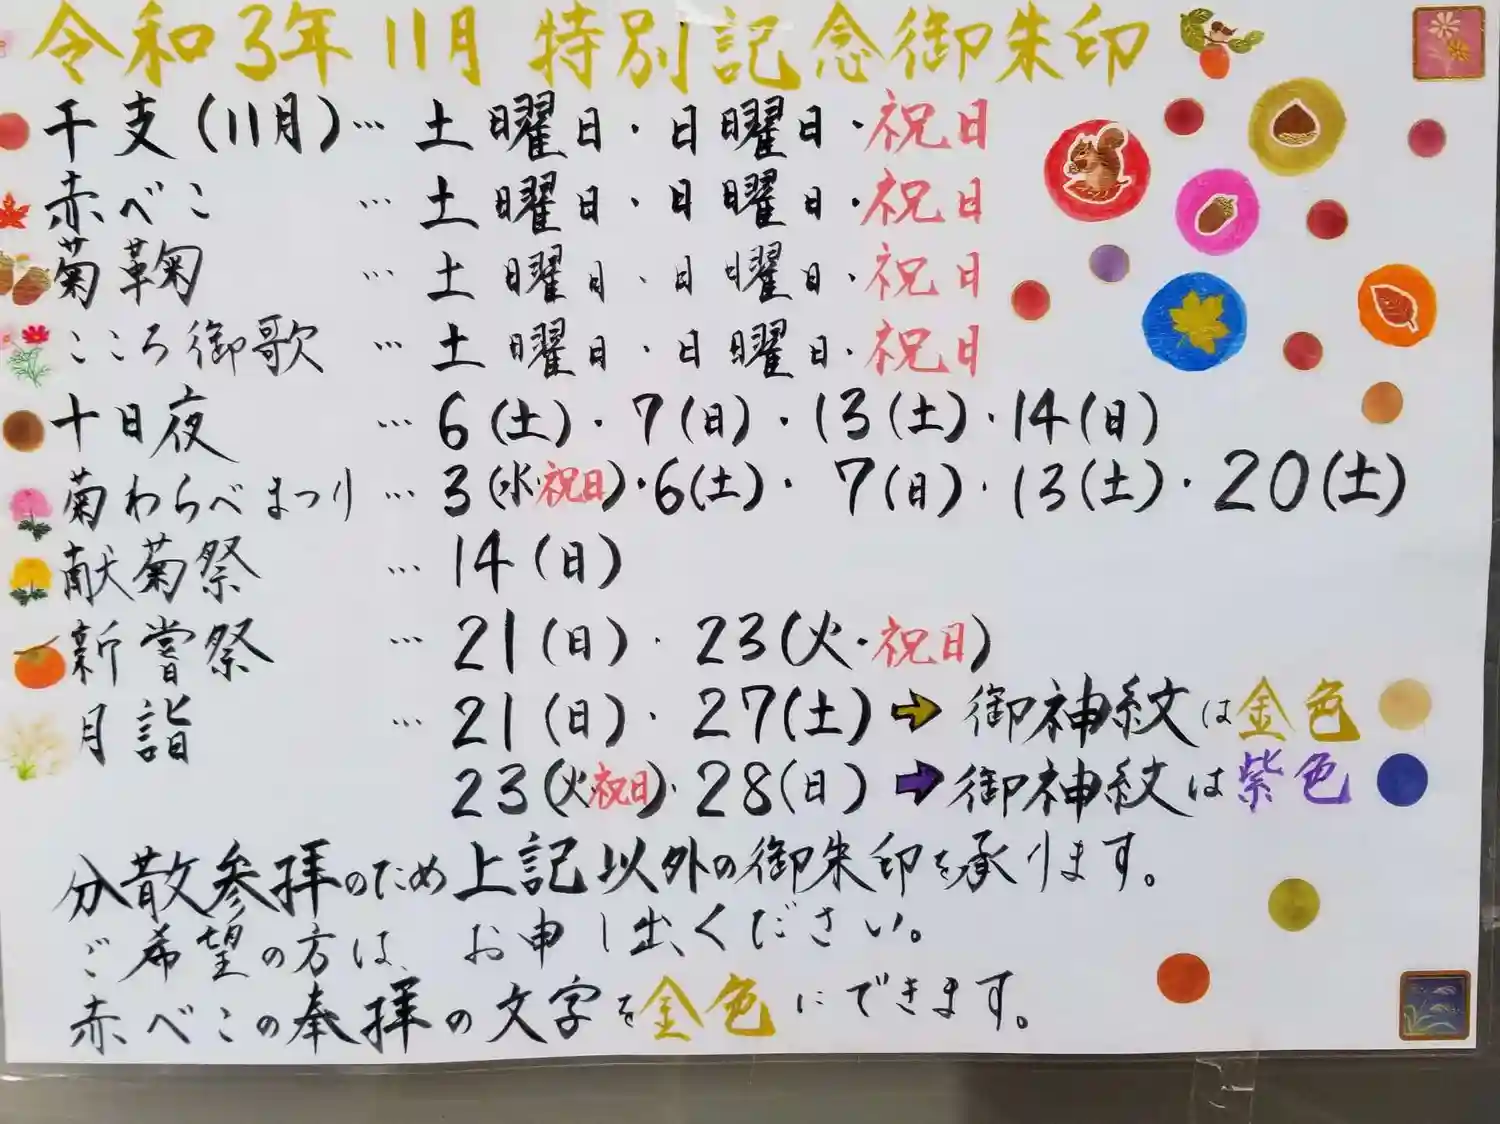 令和3年11月特別記念御朱印
干支(11月)… 土曜日・日曜日・祝日
赤べこ … 土曜日・日曜日・祝日
菊鞠 … 土曜日・日曜日・祝日
こころ御歌 … 土曜日・日曜日・祝日
十日夜 … 6(土)・7(日)・13(土)・14(日)
菊わらべまつり … 3(水・祝日)・6(土)・7(日)・13(土)・20(土)
献菊祭 … 14(日)
新嘗祭 … 21(日)・23(火・祝日)
月詣 … 21(日)・27(土)➔御神紋は金色
23(火祝日)・28(日)➔御神紋は紫色
分散参拝のため上記以外の御朱印を承ります。
ご希望の方は、お申し出ください。
赤べこの奉拝の文字を金色にできます。